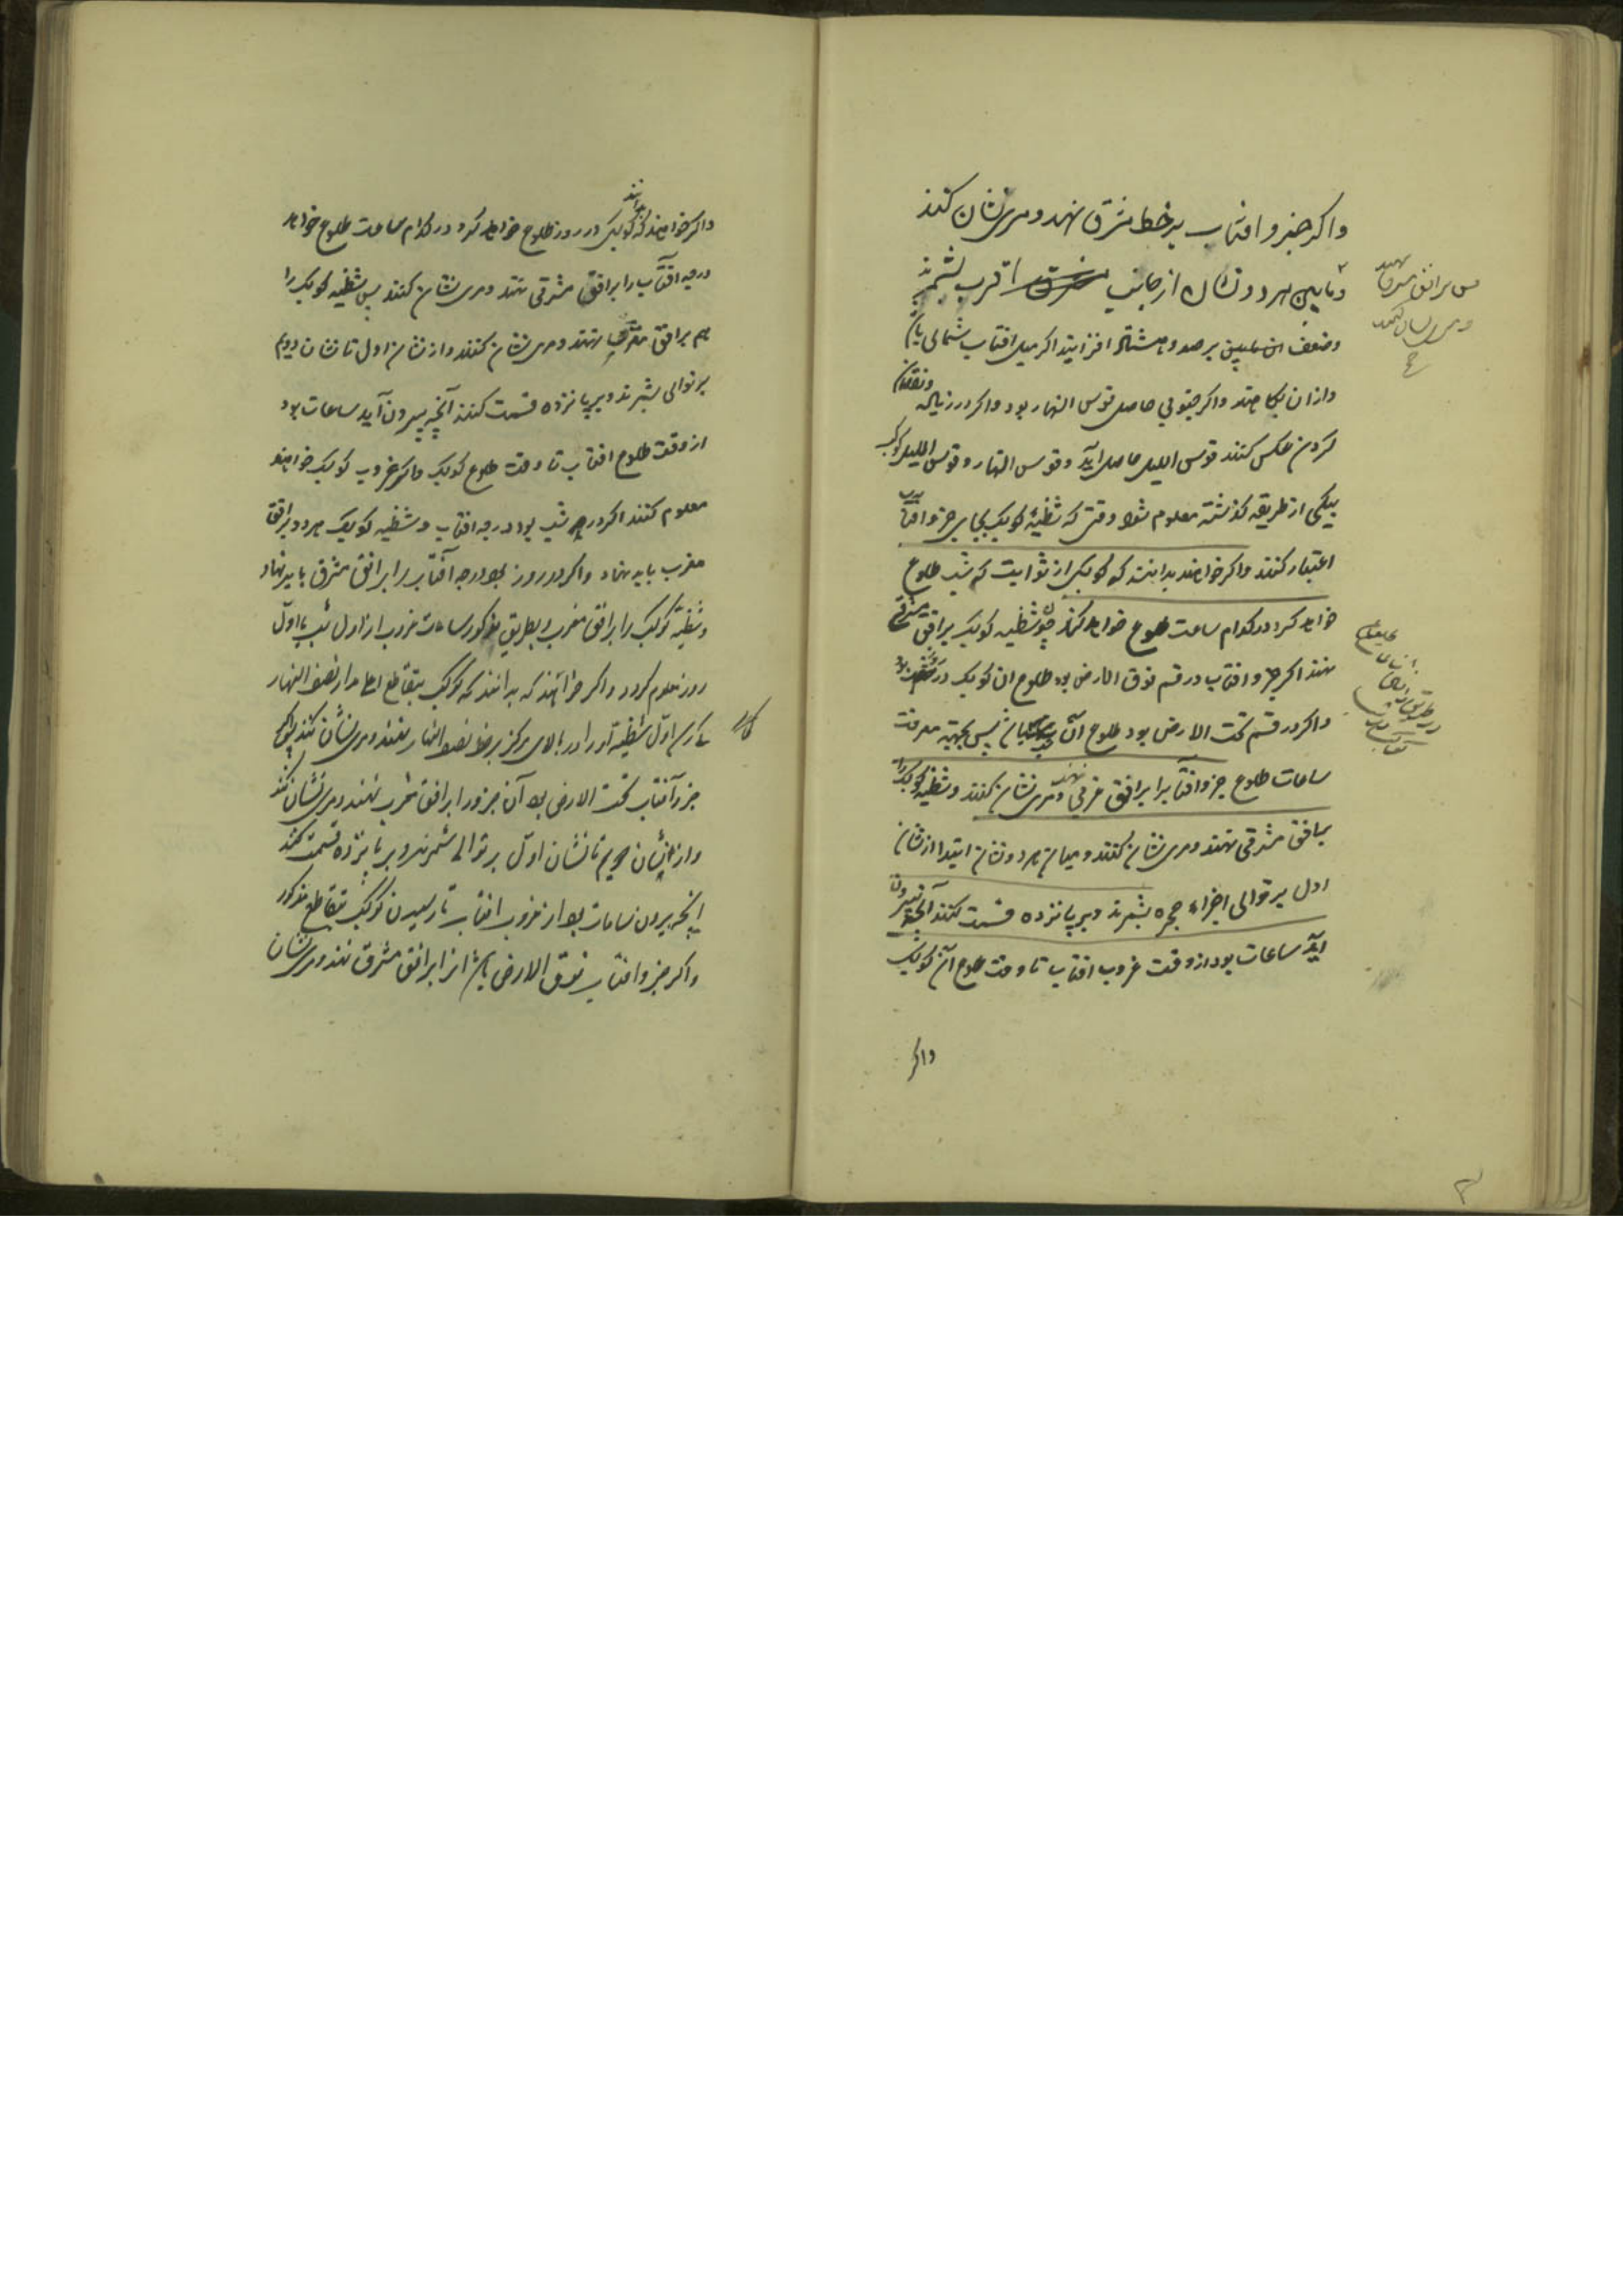 واکر جزو افتاب بر خط مشرق نهند و مری نشان کنند
و مابین هر دو نشان از جانب اقرب بشمرند
وضعف ان مابین بر صد و هشتاد افزایند اکر میل افتاب شمالی باشد
وازان بکاهند واکر جنوبی حاصل قوس النهار بود واکر در زیاده ونقصان
کردن عکس کنند قوس اللیل حاصل اید وقوس النهار وقوس اللیل کوکب
بیکی از طریقه کذشته معلوم شود وقتی که شظیه کوکب بجای جزو افتاب
اعتبار کنند واکر خواهند بدانند که کوکبی از ثوابت که شب طلوع
خواهد کرد در کدام ساعت طلوع خواهد کرد چون شظیه کوکب بر افق مشرقی
نهند اکر جزو افتاب در قسم فوق الارض بود طلوع ان کوکب در روز بود
واکر در قسم تحت الارض بود طلوع آن پس بجهة معرفت
ساعات طلوع جزو افتاب را بر افق غربی نهند ومری نشان کنند وشظیه کوکب را
بافق مشرقی نهند ومری نشان کنند ومیان هر دو نشان ابتدا از نشان
اول بر توالی اجزاء حجره بشمرند وبر پانزده قسمت کنند آنچه بیرون
آید ساعات بود از وقت غروب افتاب تا وقت طلوع آن کوکب
واکر
پس بر افق مشرق نهند
ومری نشان کنند
واکر خواهند که بدانند کوکبی در روز طلوع خواهد کرد در کدام ساعت طلوع خواهد
درجه افتاب را بر افق مشرقی نهند ومری نشان کنند پس شظیه کوکب را
هم بر افق مشرقی نهند ومری نشان کنند واز نشان اول تا نشان دویم
بر توالی بشمرند وبر پانزده قسمت کنند آنچه بیرون آید ساعات بود
از وقت طلوع افتاب تا وقت طلوع کوکب واکر غروب کوکب خواهند
معلوم کنند اکر در شب بود درجه افتاب وشظیه کوکب هر دو بر افق
مغرب باید نهاد واکر در روز بود درجه آفتاب را بر افق مشرق باید نهاد
وشظیه کوکب را بر افق مغرب وبطریق مذکور ساعات غروب از اول شب یا اول
روز معلوم کردد واکر خواهند که بدانند که کوکب بتقاطع اعلا مدار نصف النهار
کی رسد اول شظیه آورا در بالای مرکز بر خط نصف النهار نهند ومری نشان کنند پس اکر
جزو آفتاب تحت الارض بود آن جزو را بر افق مغرب نهند ومری نشان کنند
واز نشان دویم تا نشان اول بر توالی بشمرند وبر پانزده قسمت کنند
آنچه بیرون ساعات بود از غروب افتاب تا رسیدن کوکب بتقاطع مذکور
واکر جزو افتاب فوق الارض باشد انرا بر افق مشرق نهند ومری نشان